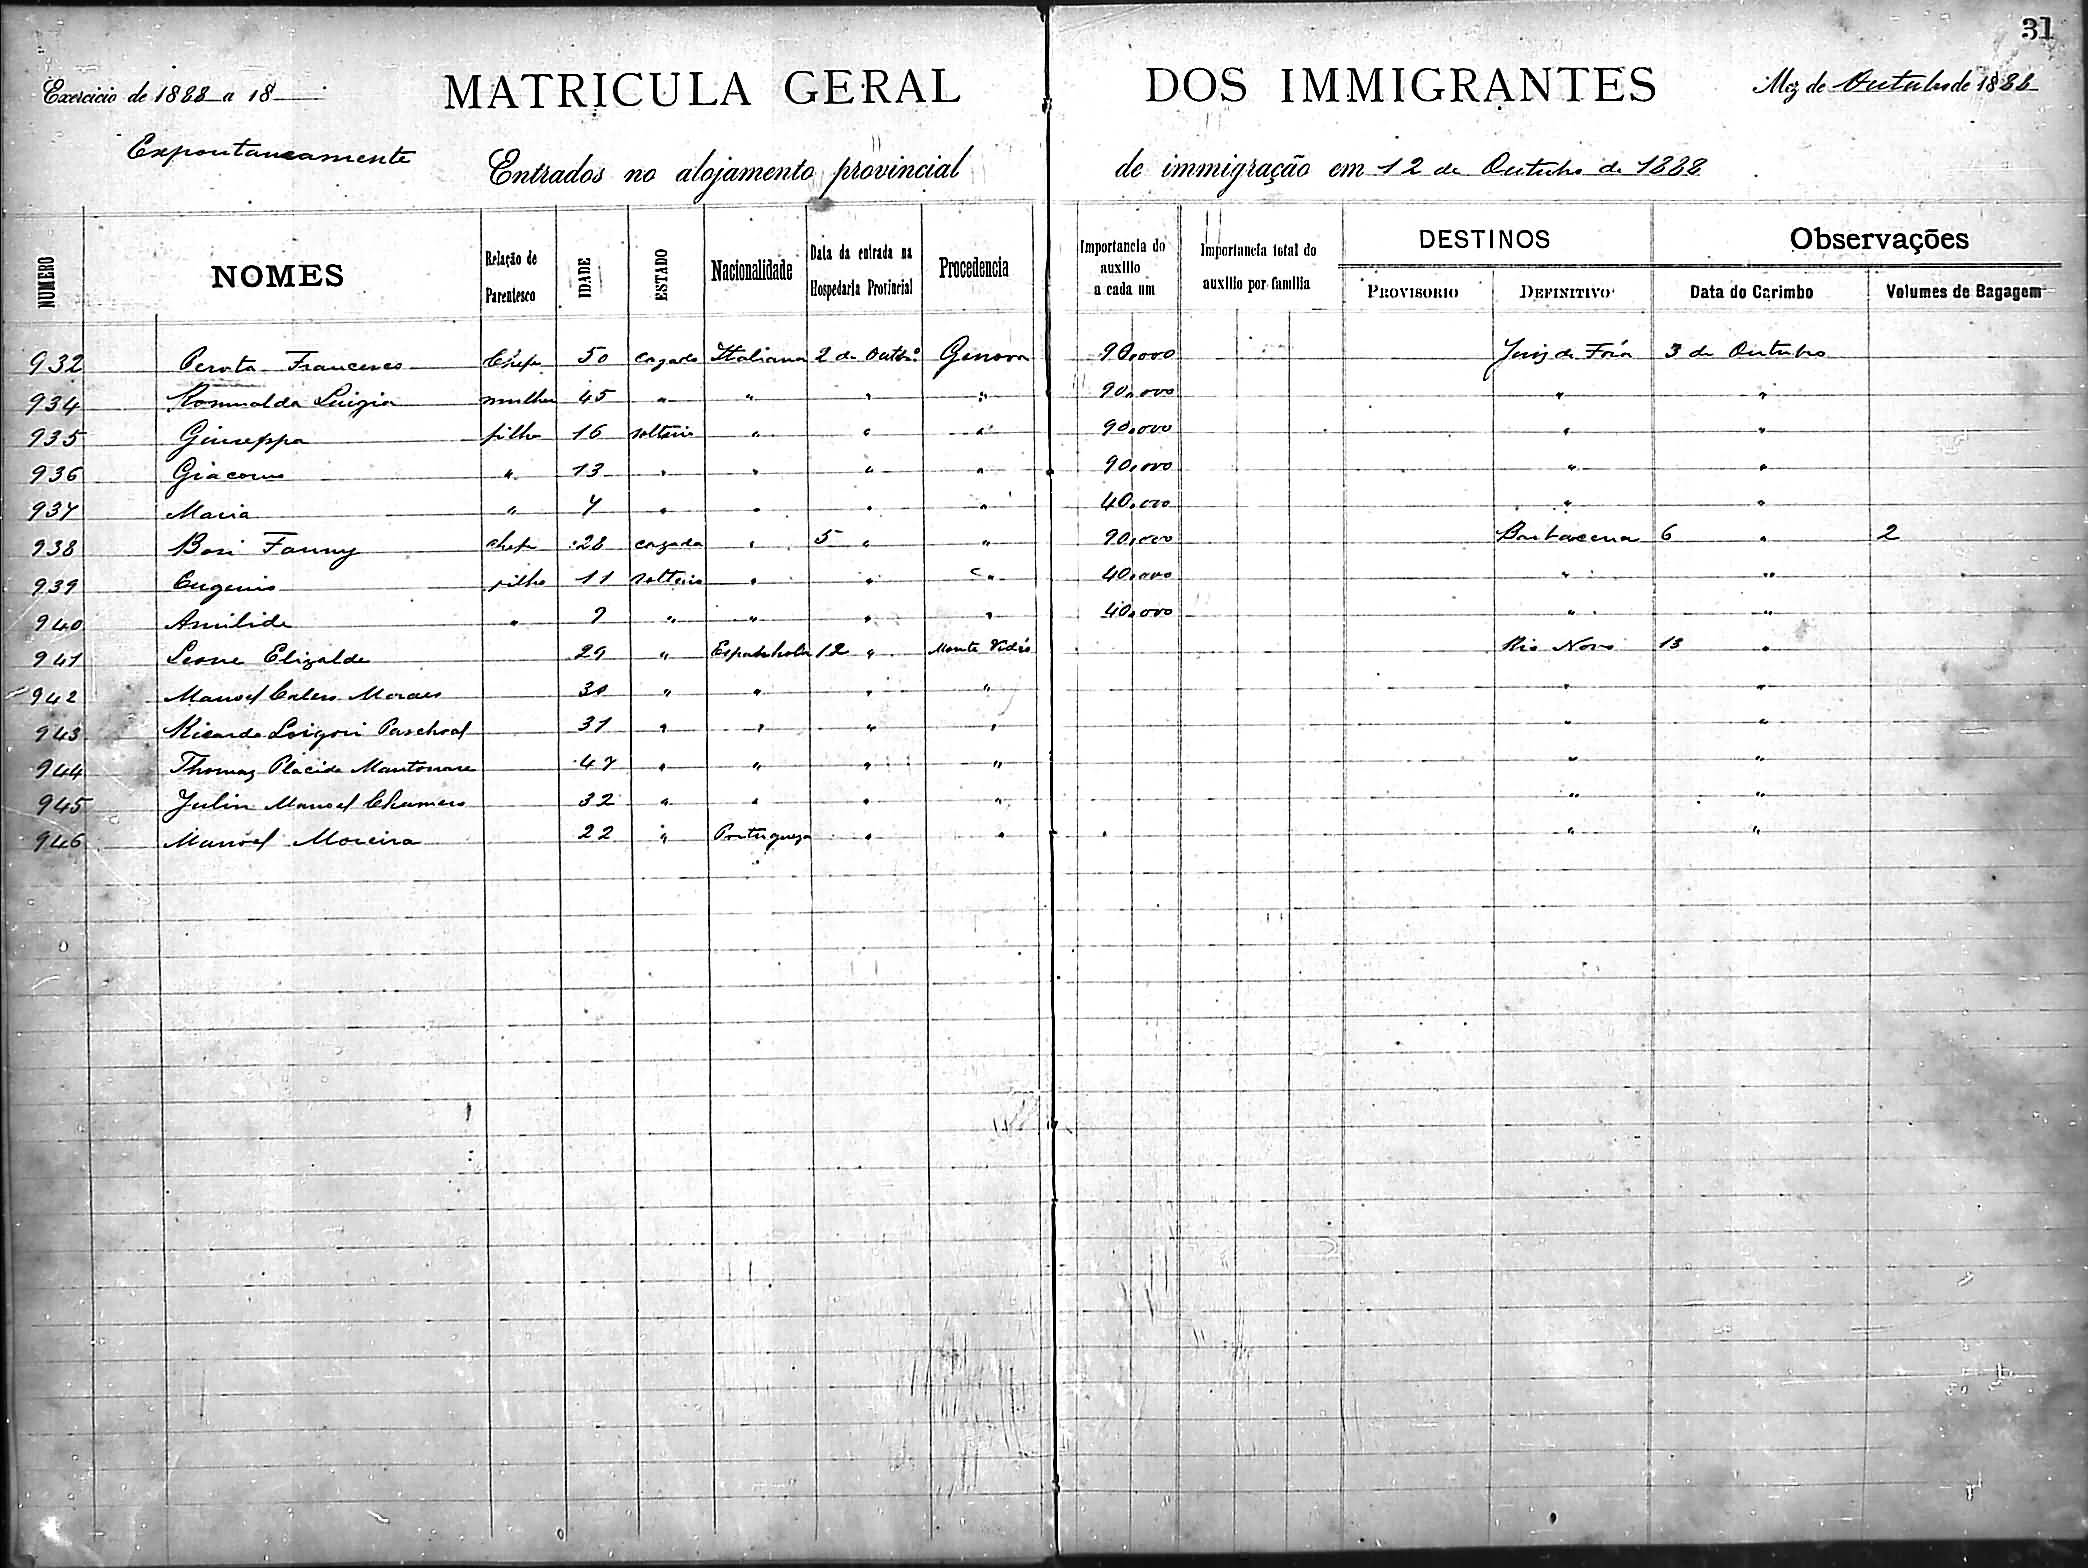 31
Exercicio de 1888 a 18 MATRICULA GERAL DOS IMMIGRANTES Mez de Outubro de 1888
Expontaneamente Entrados no alojamento provincial de immigração em 12 de Outubro de 1888
NUMERO NOMES Relação de Parentesco IDADE ESTADO Nacionalidade Data da entrada na Hospedaria Provincial Procedencia Importancia do auxilio a cada um Importancia total do auxilio por familia DESTINOS PROVISORIO DEFINITIVO Observações Data do Carimbo Volumes de Bagagem
932 Perota Francesco Chefe 50 cazado Italiana 2 de Outbrº Genova 90,000 Juiz de Fóra 3 de Outubro
934 Romualda Luigia mulher 45 " " " " 90,000 " "
935 Giuseppa filho 16 solteiro " " " 90,000 " "
936 Giacomo " 13 " " " " 90,000 " "
937 Maria " 7 " " " " 40,000 " "
938 Bosi Fanny chefe 28 cazada " 5 " " 90,000 Barbacena 6 " 2
939 Eugenio filho 11 solteiro " " " 40,000 " "
940 " 7 " " " " 40,000 " "
941 Leone Elizalde 29 " Espanhola 12 " Monte Vidéo Rio Novo 13 "
942 Manoel Moraes 30 " " " " " "
943 Ricardo Paschoal 31 " " " " " "
944 Thomaz Placido 47 " " " " " "
945 Manoel 32 " " " " " "
946 Manoel Moreira 22 " Portugueza " " " "